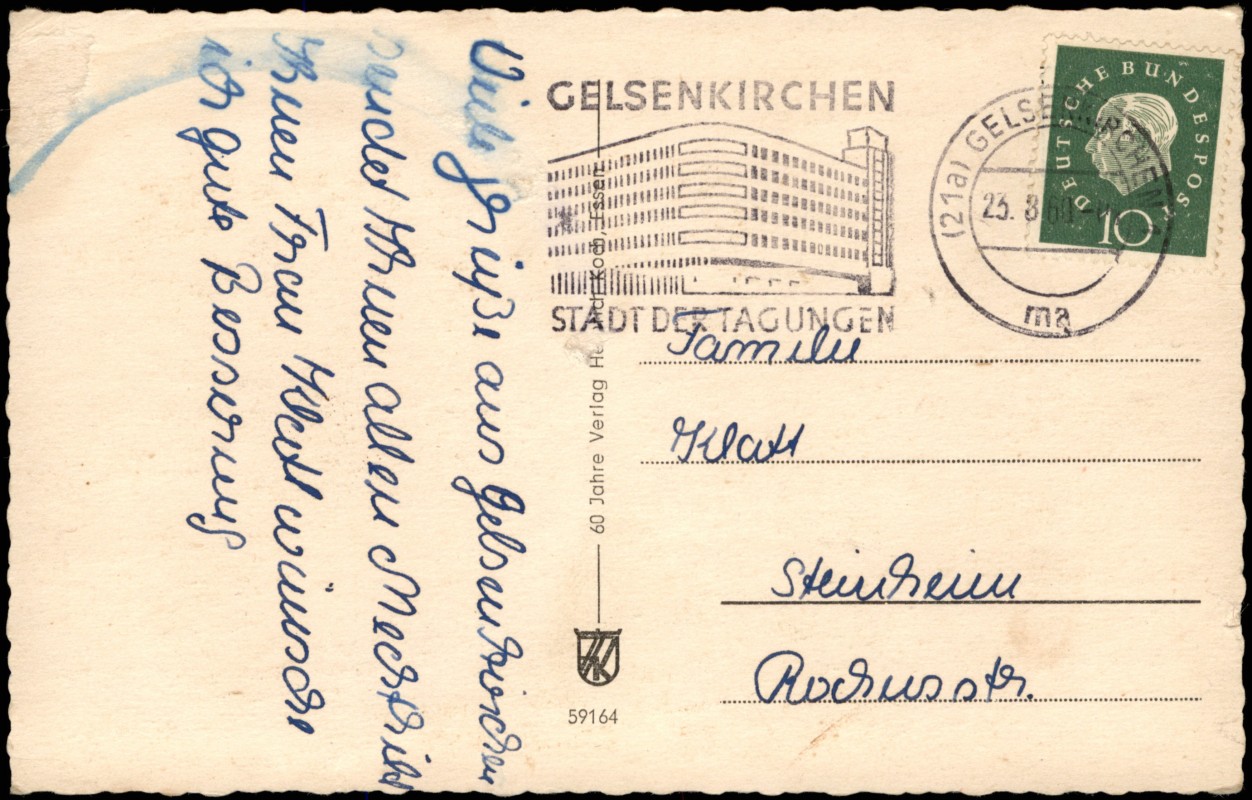 Viele Grüße aus Gelsenkirchen
sendet Ihnen allen Mechthild
Ihnen Frau Klatt wünsche
ich gute Besserung
GELSENKIRCHEN
STADT DER TAGUNGEN
(21a) GELSENKIRCHEN 1
23. 8. 60
ma
DEUTSCHE BUNDESPOST
10
Familie
Klatt
Steinheim
Rochusstr.
60 Jahre Verlag Koch, Essen
59164